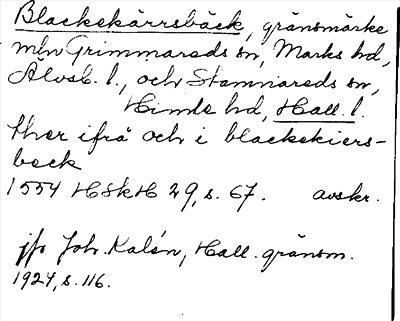 Blackekärrsbäck, gränsmärke
mln Grimmareds sn, Marks hd,
Älvsb. l., och Stamnareds sn,
Himle hd, Hall. l.
ther ifrå och i blackekiers-
beck
1554 HSkH 29, s. 67. avskr.
jfr Joh. Kalén, Hall. gränsm.
1924, s. 116.